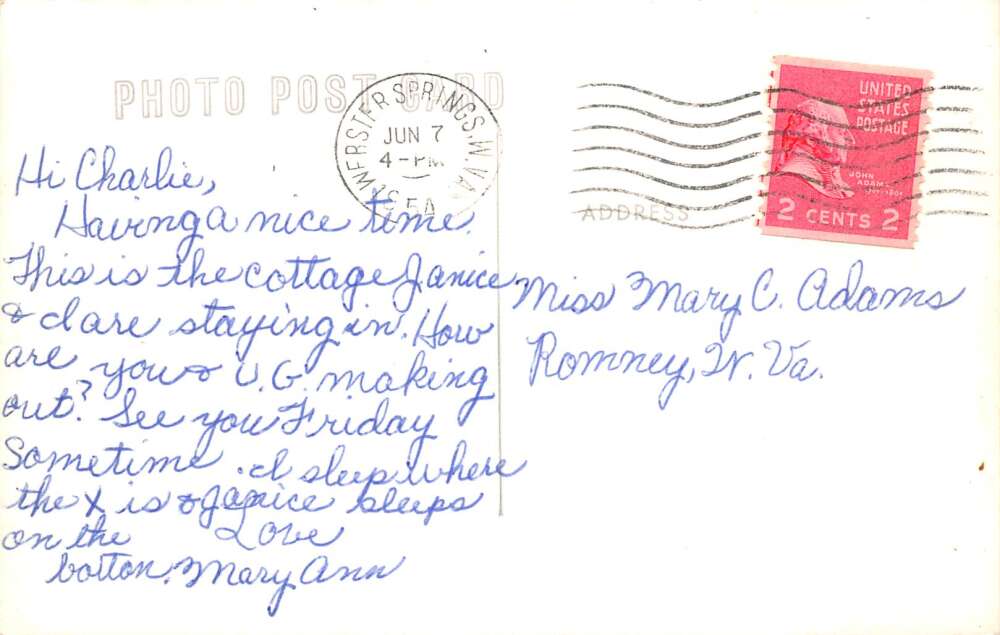 PHOTO POST CARD
WEBSTER SPRINGS, W. VA.
JUN 7
4-PM
UNITED
STATES
POSTAGE
JOHN
ADAMS
2 CENTS 2
ADDRESS
Hi Charlie,
Having a nice time.
This is the cottage Janice
& I are staying in. How
are you & V.G. making
out? See you Friday
Sometime. I sleep where
the X is & Janice sleeps
on the Love
botton. Mary Ann
Miss Mary C. Adams
Romney, W. Va.